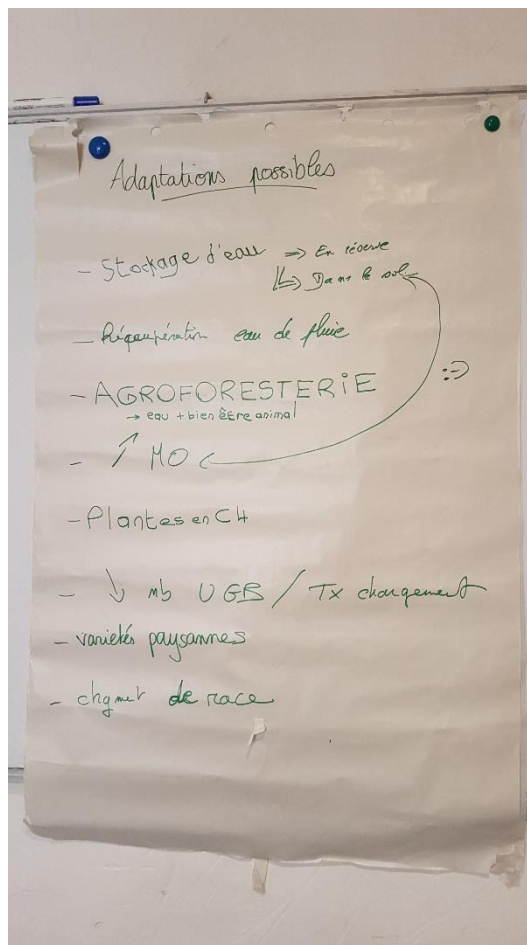 Adaptations possibles
- Stockage d'eau => En réserve
=> Dans le sol
- Récupération eau de pluie
- AGROFORESTERIE
→ eau + bien être animal
- ↗ MO
:-)
- Plantes en C4
- ↘ nb UGB / Tx chargement
- variétés paysannes
- chgmet de race